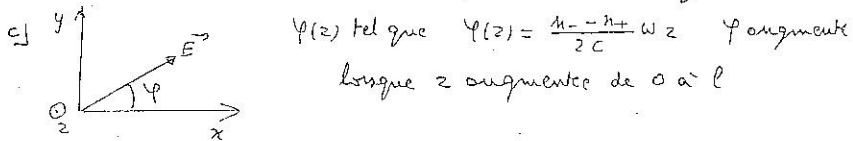 c) y φ(z) tel que φ(z) = \frac{n_- - n_+}{2c} ω z φ augmente
E⃗ lorsque z augmente de 0 à l
φ
z x